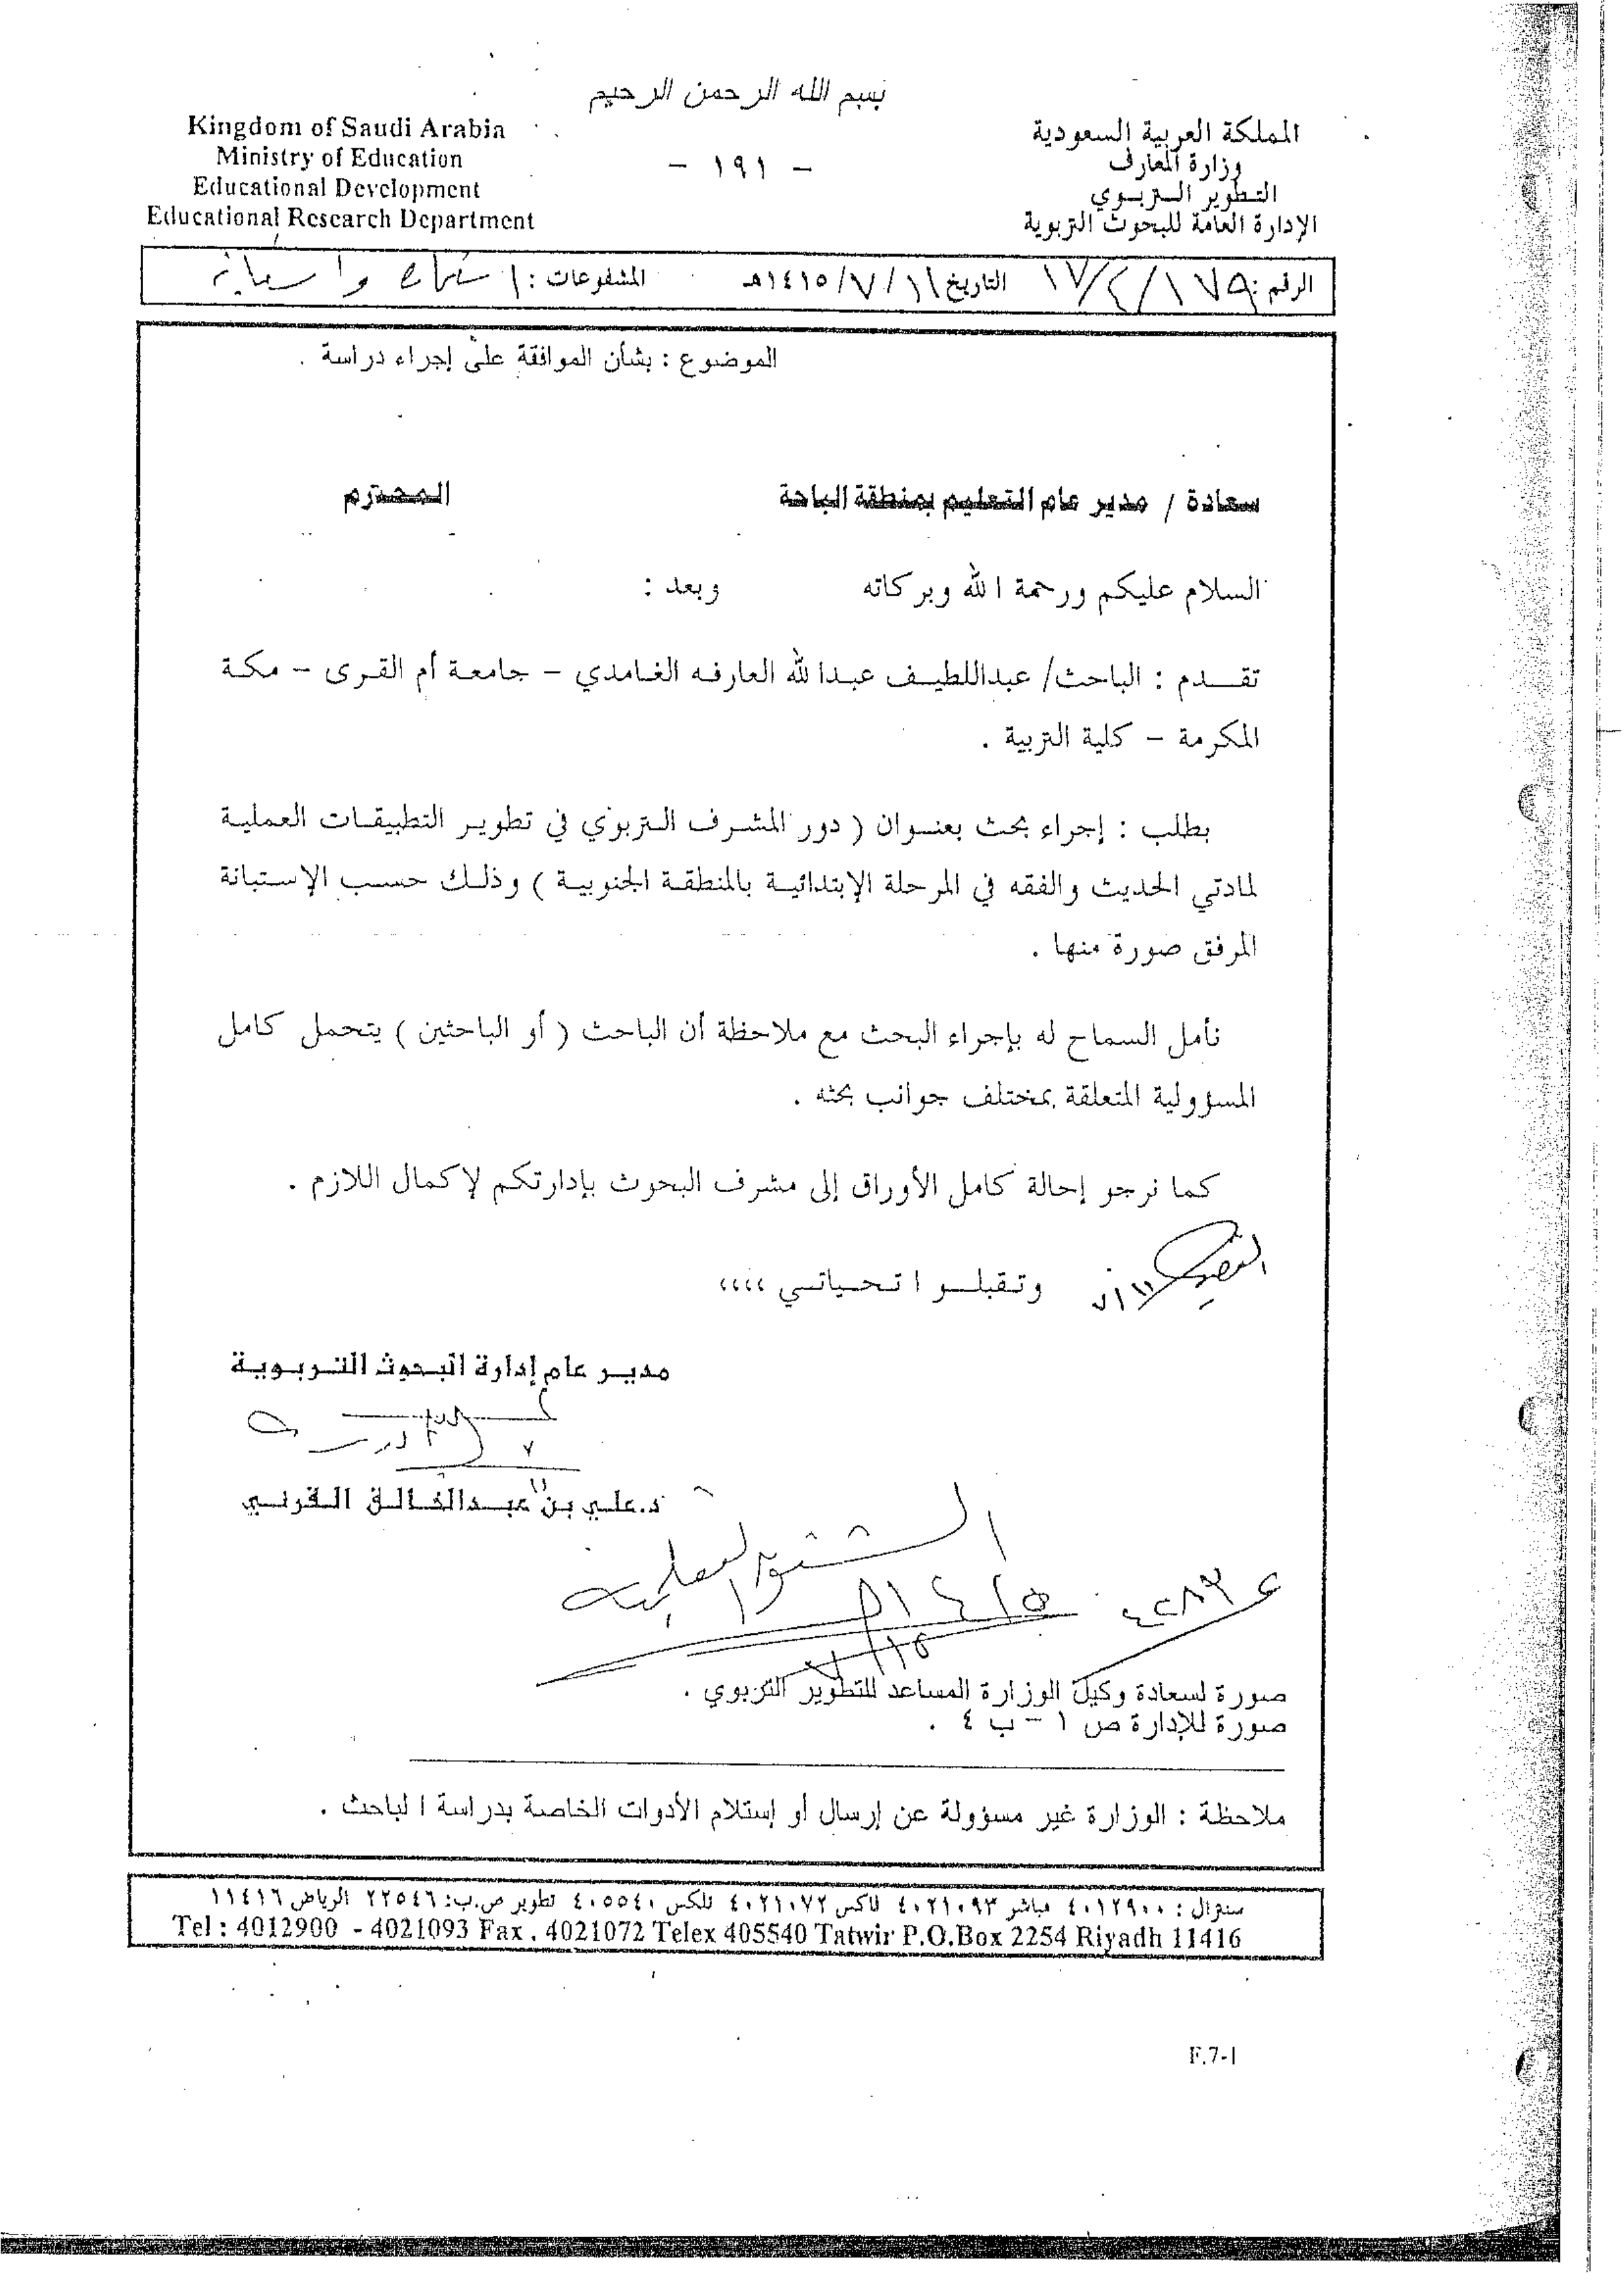 بسم الله الرحمن الرحيم
Kingdom of Saudi Arabia
Ministry of Education
Educational Development
Educational Research Department
- ١٩١ -
المملكة العربية السعودية
وزارة المعارف
التطوير التربوي
الإدارة العامة للبحوث التربوية
الرقم : ١٧/٤/١٧٥ التاريخ ١١/٧/١٤١٥هـ المشفوعات :
الموضوع : بشأن الموافقة على إجراء دراسة .
سعادة / مدير عام التعليم بمنطقة الباحة المحترم
السلام عليكم ورحمة الله وبركاته وبعد :
تقدم : الباحث/ عبداللطيف عبدالله العارفه الغامدي - جامعة أم القرى - مكة
المكرمة - كلية التربية .
بطلب : إجراء بحث بعنوان ( دور المشرف التربوي في تطوير التطبيقات العملية
لمادتي الحديث والفقه في المرحلة الإبتدائية بالمنطقة الجنوبية ) وذلك حسب الإستبانة
المرفق صورة منها .
نأمل السماح له بإجراء البحث مع ملاحظة أن الباحث ( أو الباحثين ) يتحمل كامل
المسؤولية المتعلقة بمختلف جوانب بحثه .
كما نرجو إحالة كامل الأوراق إلى مشرف البحوث بإدارتكم لإكمال اللازم .
وتقبلوا تحياتي ،،،،
مدير عام إدارة البحوث التربوية
د.علي بن عبدالخالق القرني
صورة لسعادة وكيل الوزارة المساعد للتطوير التربوي .
صورة للإدارة ص ١ - ب ٤ .
ملاحظة : الوزارة غير مسؤولة عن إرسال أو إستلام الأدوات الخاصة بدراسة الباحث .
سنترال : ٤٠١٢٩٠٠ مباشر ٤٠٢١٠٩٣ فاكس ٤٠٢١٠٧٢ تلكس ٤٠٥٥٤٠ تطوير ص.ب: ٢٢٥٤٦ الرياض ١١٤١٦
Tel : 4012900 - 4021093 Fax . 4021072 Telex 405540 Tatwir P.O.Box 2254 Riyadh 11416
F.7-1